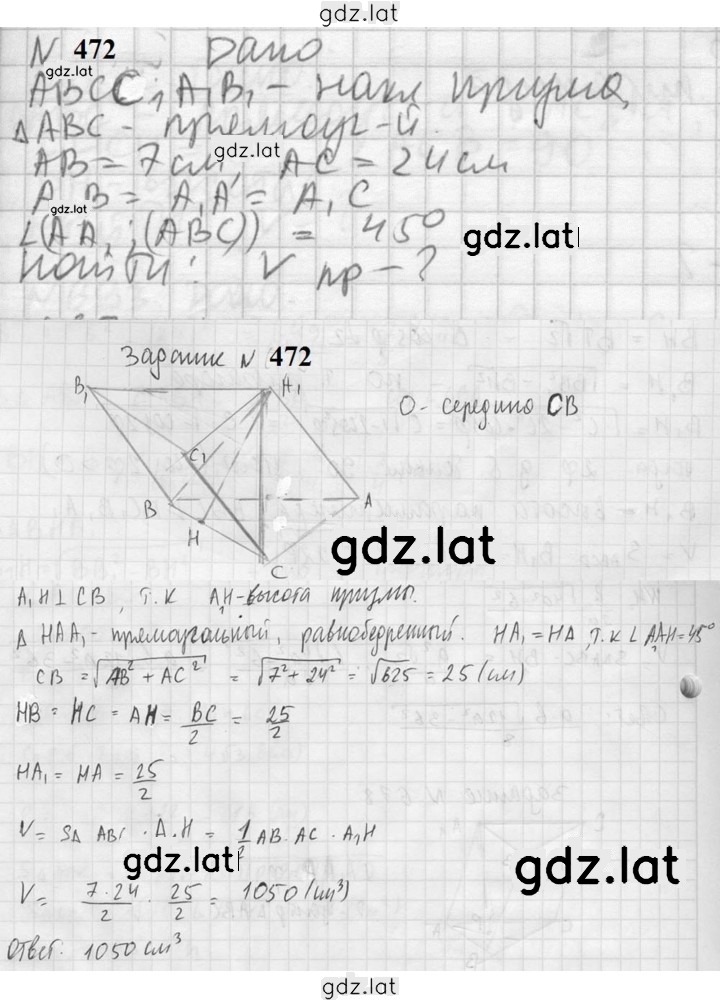 gdz.lat
N 472 Дано
gdz.lat
ABCC₁A₁B₁ - накл призма,
△ABC - прямоуг-й.
gdz.lat
AB = 7 см, AC = 24 см
A₁B = A₁A = A₁C
gdz.lat
∠(AA₁; (ABC)) = 45°
gdz.lat
Найти: V пр - ?
Задание N 472
B₁ A₁
O - середина CB
C₁
B A
H
C
gdz.lat
A₁H ⊥ CB, т.к A₁H - высота призмы.
△ HAA₁ - прямоугольный, равнобедренный. HA₁ = HA, т.к ∠A₁AH = 45°
CB = √AB² + AC² = √7² + 24² = √625 = 25 (см)
HB = HC = AH = BC/2 = 25/2
HA₁ = HA = 25/2
V = S△ ABC · A₁H = 1/2 AB · AC · A₁H
gdz.lat
gdz.lat
V = 7·24/2 · 25/2 = 1050 (см³)
Ответ. 1050 см³
gdz.lat